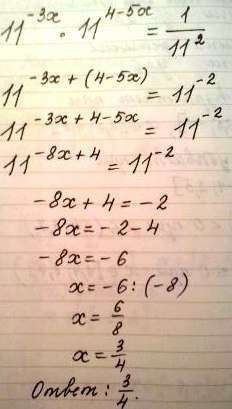 11^{-3x} · 11^{4-5x} = \frac{1}{11^2}
11^{-3x + (4-5x)} = 11^{-2}
11^{-3x + 4 - 5x} = 11^{-2}
11^{-8x + 4} = 11^{-2}
-8x + 4 = -2
-8x = -2 - 4
-8x = -6
x = -6 : (-8)
x = \frac{6}{8}
x = \frac{3}{4}
Ответ: \frac{3}{4}.